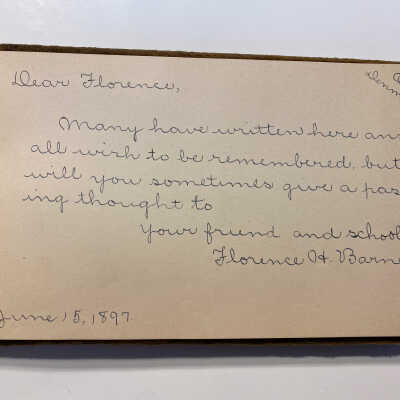 Dear Florence,
Many have written here an
all wish to be remembered, but
will you sometimes give a pas
ing thought to
Your friend and school
Florence H. Barn
June 15, 1897